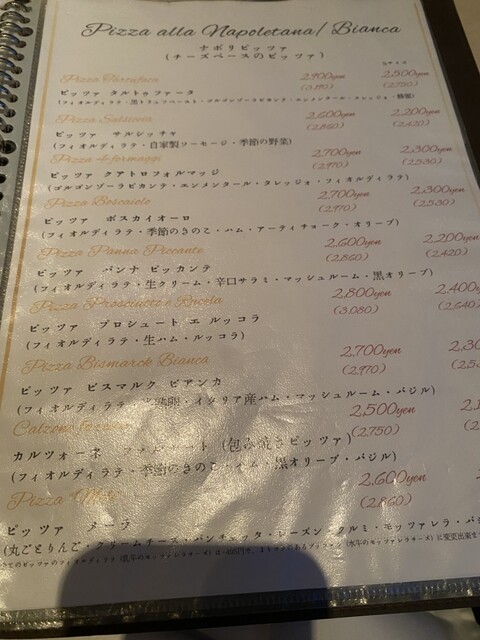 Pizza alla Napoletana/ Bianca
ナポリピッツァ
(チーズベースのピッツァ)
Sサイズ
Pizza Tartufata 2,900yen 2,500yen
ピッツァ タルトゥファータ (3,190) (2,750)
Pizza Salsiccia 2,600yen 2,200yen
ピッツァ サルシッチャ (2,860) (2,420)
(フィオルディラテ・自家製ソーセージ・季節の野菜)
Pizza 4 formaggi 2,700yen 2,300yen
ピッツァ クアトロフォルマッジ (2,970) (2,530)
(ゴルゴンゾーラピカンテ・エメンタール・タレッジォ・フィオルディラテ)
Pizza Boscaiolo 2,700yen 2,300yen
ピッツァ ボスカイオーロ (2,970) (2,530)
(フィオルディラテ・季節のきのこ・ハム・アーティチョーク・オリーブ)
Pizza Panna Piccante 2,600yen 2,200yen
ピッツァ パンナ ピッカンテ (2,860) (2,420)
(フィオルディラテ・生クリーム・辛口サラミ・マッシュルーム・黒オリーブ)
Pizza Prosciutto e Rucola 2,800yen 2,400y
ピッツァ プロシュート エ ルッコラ (3,080) (2,640
(フィオルディラテ・生ハム・ルッコラ)
Pizza Bismarck Bianca 2,700yen 2,30
ピッツァ ビスマルク ビアンカ (2,970) (2,5
(フィオルディラテ・ ・イタリア産ハム・マッシュルーム・バジル)
Calzone 2,500yen
カルツォーネ (包み焼きピッツァ) (2,750)
(フィオルディラテ・季節のきのこ・ハム・黒オリーブ・バジル)
Pizza 2,600yen
ピッツァ メーラ (2,860)
(丸ごとりんご・クリームチーズ・パンチェッタ・レーズン・クルミ・モッツァレラ・